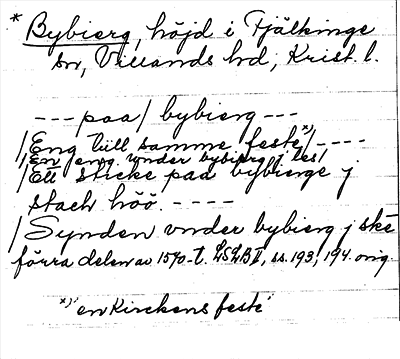 * Bybierg, höjd i Fjälkinge
sn, Villands hd, Krist. l.
--- paa / bybierg ---
/ Eng till samme feste *)/ ----
/ En eng vnder bybierg j les /
/ Ett sticke paa bybierge j
stack höö. ----
/ Synden vnder bybierg j ske
förra delen av 1570-t. LSLB II, ss. 193, 194 orig.
*) 'en Kirckens feste'